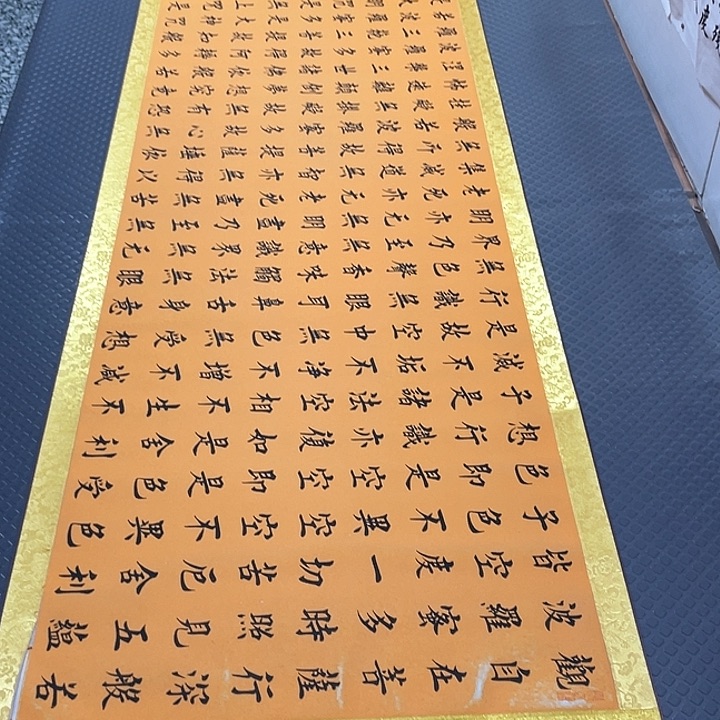 觀自在菩薩行深般若
波羅蜜多時照見五蘊
皆空度一切苦厄舍利
子色不異空空不異色
色即是空空即是色受
想行識亦復如是舍利
子是諸法空相不生不
滅不垢不淨不增不減
是故空中無色無受想
行識無眼耳鼻舌身意
無色聲香味觸法無眼
界乃至無意識界無无
明亦无無明盡乃至無
老死亦无老死盡無苦
集滅道無智亦無得以
無所得故菩提薩埵依
般若波羅蜜多故心無
罣礙無罣礙故無有恐
怖遠離顛倒夢想究竟
涅槃三世諸佛依般若
波羅蜜多故得阿耨多
羅三藐三菩提故知般
若波羅蜜多是大神咒